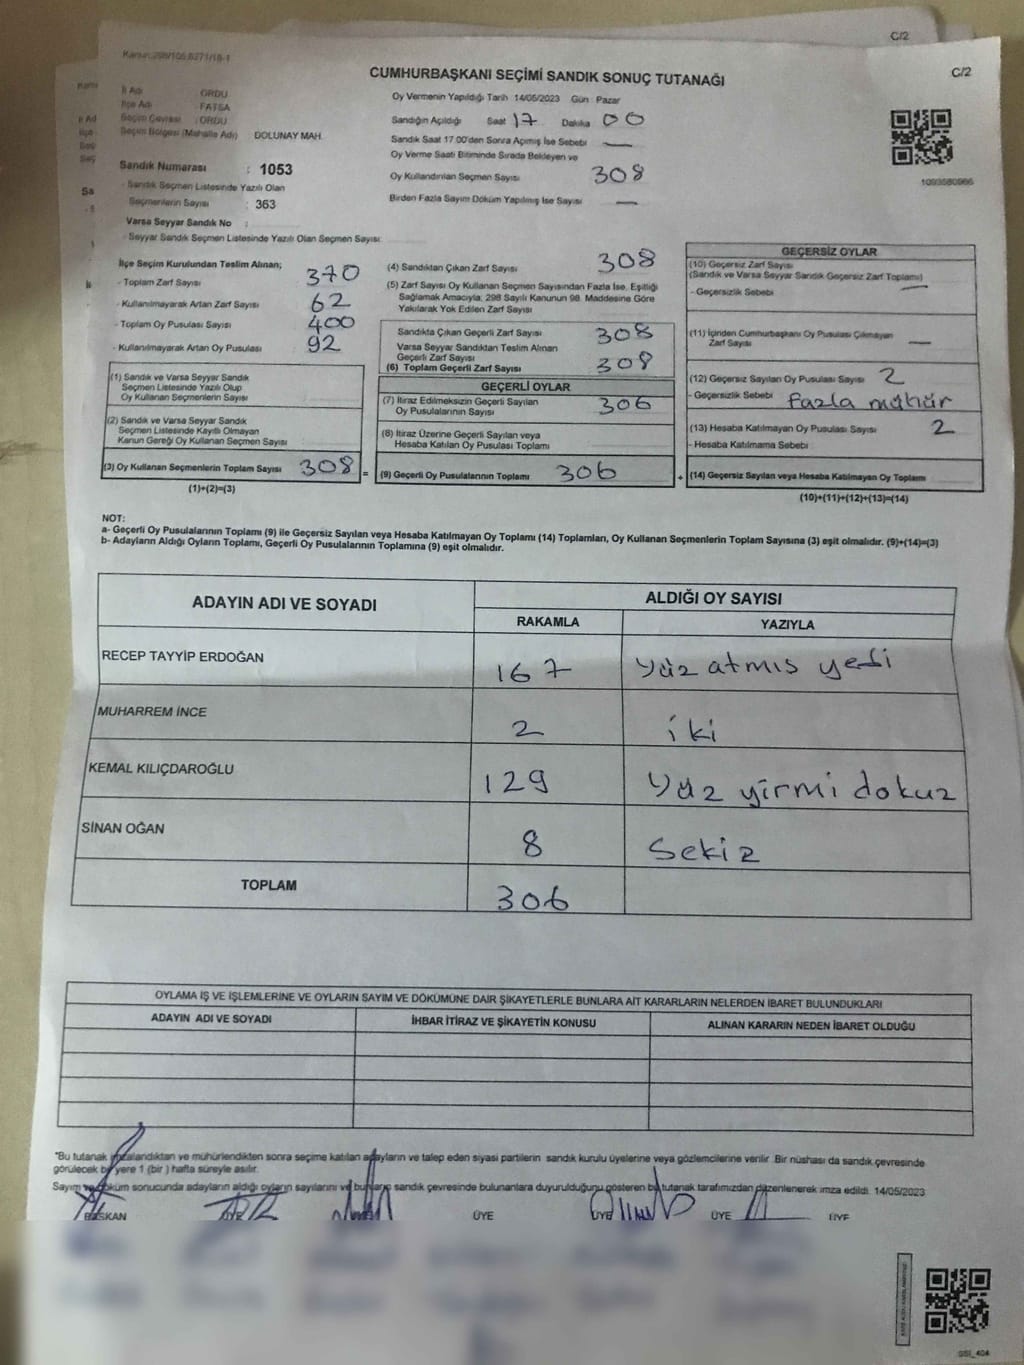 C/2
Kanun:298/105,6271/18-1
C/2
CUMHURBAŞKANI SEÇİMİ SANDIK SONUÇ TUTANAĞI
İl Adı : ORDU
İlçe Adı : FATSA
Seçim Çevresi : ORDU
Seçim Bölgesi (Mahalle Adı) DOLUNAY MAH.
Sandık Numarası : 1053
- Sandık Seçmen Listesinde Yazılı Olan
Seçmenlerin Sayısı : 363
Varsa Seyyar Sandık No :
- Seyyar Sandık Seçmen Listesinde Yazılı Olan Seçmen Sayısı:
Oy Vermenin Yapıldığı Tarih 14/05/2023 Gün : Pazar
Sandığın Açıldığı Saat 17 Dakika 00
Sandık Saat 17.00'den Sonra Açılmış İse Sebebi —
Oy Verme Saati Bitiminde Sırada Bekleyen ve
Oy Kullandırılan Seçmen Sayısı 308
Birden Fazla Sayım Döküm Yapılmış İse Sayısı —
1093580966
İlçe Seçim Kurulundan Teslim Alınan;
- Toplam Zarf Sayısı 370
- Kullanılmayarak Artan Zarf Sayısı 62
- Toplam Oy Pusulası Sayısı 400
- Kullanılmayarak Artan Oy Pusulası 92
(1) Sandık ve Varsa Seyyar Sandık
Seçmen Listesinde Yazılı Olup
Oy Kullanan Seçmenlerin Sayısı
(2) Sandık ve Varsa Seyyar Sandık
Seçmen Listesinde Kayıtlı Olmayan
Kanun Gereği Oy Kullanan Seçmen Sayısı
(3) Oy Kullanan Seçmenlerin Toplam Sayısı 308 =
(1)+(2)=(3)
(4) Sandıktan Çıkan Zarf Sayısı 308
(5) Zarf Sayısı Oy Kullanan Seçmen Sayısından Fazla İse, Eşitliği
Sağlamak Amacıyla; 298 Sayılı Kanunun 98. Maddesine Göre
Yakılarak Yok Edilen Zarf Sayısı
Sandıkta Çıkan Geçerli Zarf Sayısı 308
Varsa Seyyar Sandıktan Teslim Alınan
Geçerli Zarf Sayısı
(6) Toplam Geçerli Zarf Sayısı 308
GEÇERLİ OYLAR
(7) İtiraz Edilmeksizin Geçerli Sayılan
Oy Pusulalarının Sayısı 306
(8) İtiraz Üzerine Geçerli Sayılan veya
Hesaba Katılan Oy Pusulası Toplamı
(9) Geçerli Oy Pusulalarının Toplamı 306 +
GEÇERSİZ OYLAR
(10) Geçersiz Zarf Sayısı
(Sandık ve Varsa Seyyar Sandık Geçersiz Zarf Toplamı) —
- Geçersizlik Sebebi
(11) İçinden Cumhurbaşkanı Oy Pusulası Çıkmayan
Zarf Sayısı —
(12) Geçersiz Sayılan Oy Pusulası Sayısı 2
- Geçersizlik Sebebi Fazla mühür
(13) Hesaba Katılmayan Oy Pusulası Sayısı 2
- Hesaba Katılmama Sebebi
(14) Geçersiz Sayılan veya Hesaba Katılmayan Oy Toplamı
(10)+(11)+(12)+(13)=(14)
NOT:
a- Geçerli Oy Pusulalarının Toplamı (9) ile Geçersiz Sayılan veya Hesaba Katılmayan Oy Toplamı (14) Toplamları, Oy Kullanan Seçmenlerin Toplam Sayısına (3) eşit olmalıdır. (9)+(14)=(3)
b- Adayların Aldığı Oyların Toplamı, Geçerli Oy Pusulalarının Toplamına (9) eşit olmalıdır.
ADAYIN ADI VE SOYADI
ALDIĞI OY SAYISI
RAKAMLA YAZIYLA
RECEP TAYYİP ERDOĞAN 167 Yüz atmış yedi
MUHARREM İNCE 2 iki
KEMAL KILIÇDAROĞLU 129 Yüz yirmi dokuz
SİNAN OĞAN 8 Sekiz
TOPLAM 306
OYLAMA İŞ VE İŞLEMLERİNE VE OYLARIN SAYIM VE DÖKÜMÜNE DAİR ŞİKAYETLERLE BUNLARA AİT KARARLARIN NELERDEN İBARET BULUNDUKLARI
ADAYIN ADI VE SOYADI İHBAR İTİRAZ VE ŞİKAYETİN KONUSU ALINAN KARARIN NEDEN İBARET OLDUĞU
*Bu tutanak imzalandıktan ve mühürlendikten sonra seçime katılan adayların ve talep eden siyasi partilerin sandık kurulu üyelerine veya gözlemcilerine verilir. Bir nüshası da sandık çevresinde
görülecek bir yere 1 (bir) hafta süreyle asılır.
Sayım ve döküm sonucunda adayların aldığı oyların sayılarını ve bunların sandık çevresinde bulunanlara duyurulduğunu gösteren bu tutanak tarafımızdan düzenlenerek imza edildi. 14/05/2023
BAŞKAN ÜYE ÜYE ÜYE ÜYE ÜYE
SSI_404